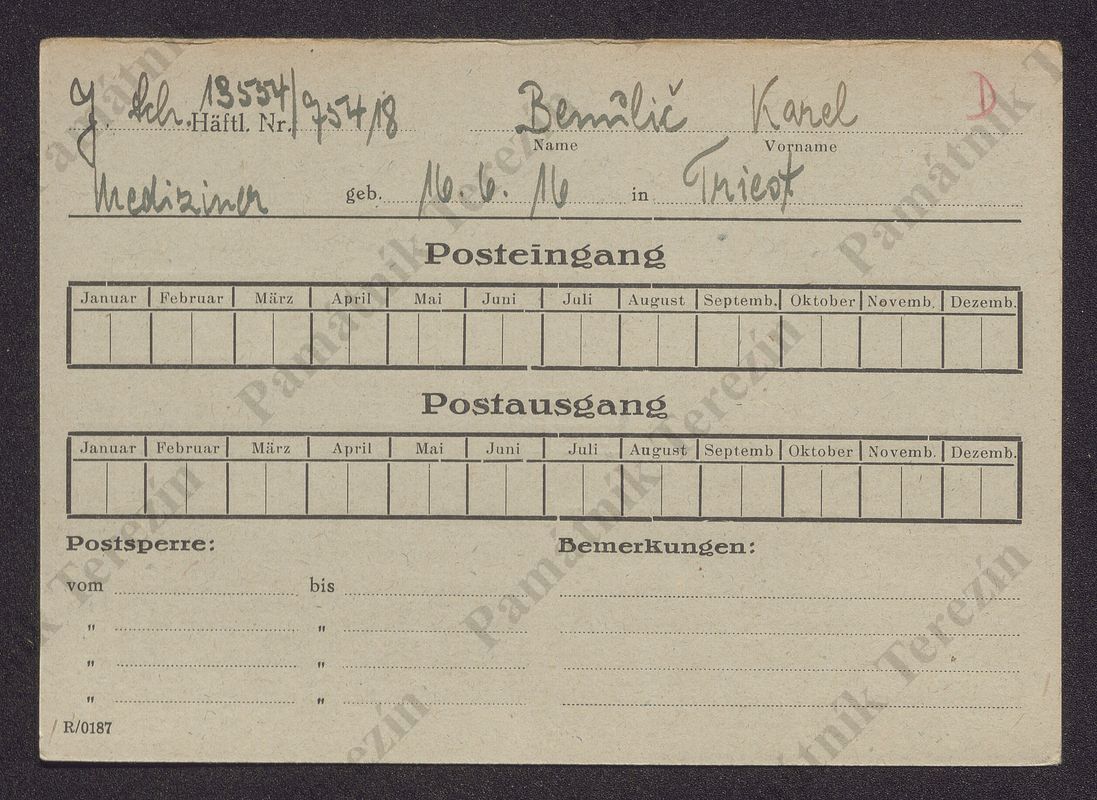 J. Sch. 13554/75418 Bemulič Karel D
Häftl. Nr. Name Vorname
Mediziner geb. 16. 6. 16 in Triest
Posteingang
Januar Februar März April Mai Juni Juli August Septemb. Oktober Novemb. Dezemb.
Postausgang
Januar Februar März April Mai Juni Juli August Septemb Oktober Novemb. Dezemb.
Postsperre: Bemerkungen:
vom bis
" "
" "
" "
R/0187
Památník Terezín